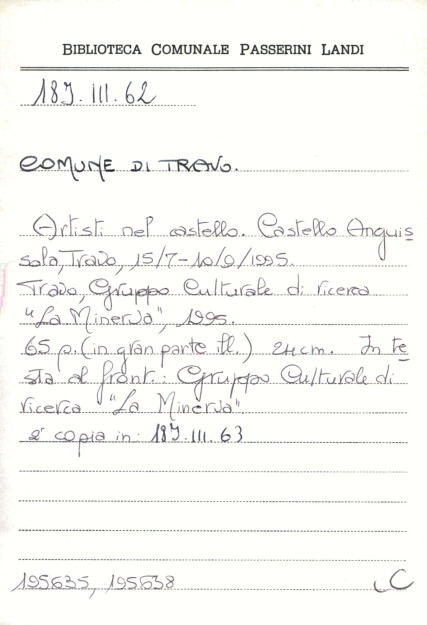 BIBLIOTECA COMUNALE PASSERINI LANDI
18J.III.62
COMUNE DI TRAVO.
Artisti nel castello. Castello Anguis
sola, Travo, 15/7-10/9/1995.
Travo, Gruppo Culturale di ricerca
"La Minerva", 1995.
65 p. (in gran parte ill.) 24 cm. In te
sta al front.: Gruppo Culturale di
ricerca "La Minerva"
2ª copia in: 18J.III.63
195635, 195638